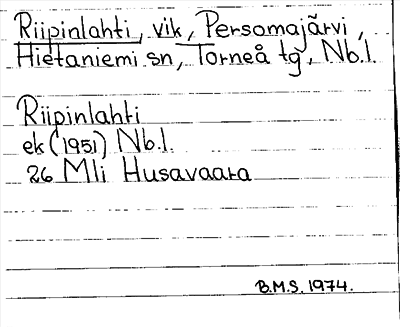 Riipinlahti, vik, Persomajärvi,
Hietaniemi sn, Torneå tg, Nb.l.
Riipinlahti
ek (1951) Nb.l.
26 Mli Husavaara
B.M.S. 1974.